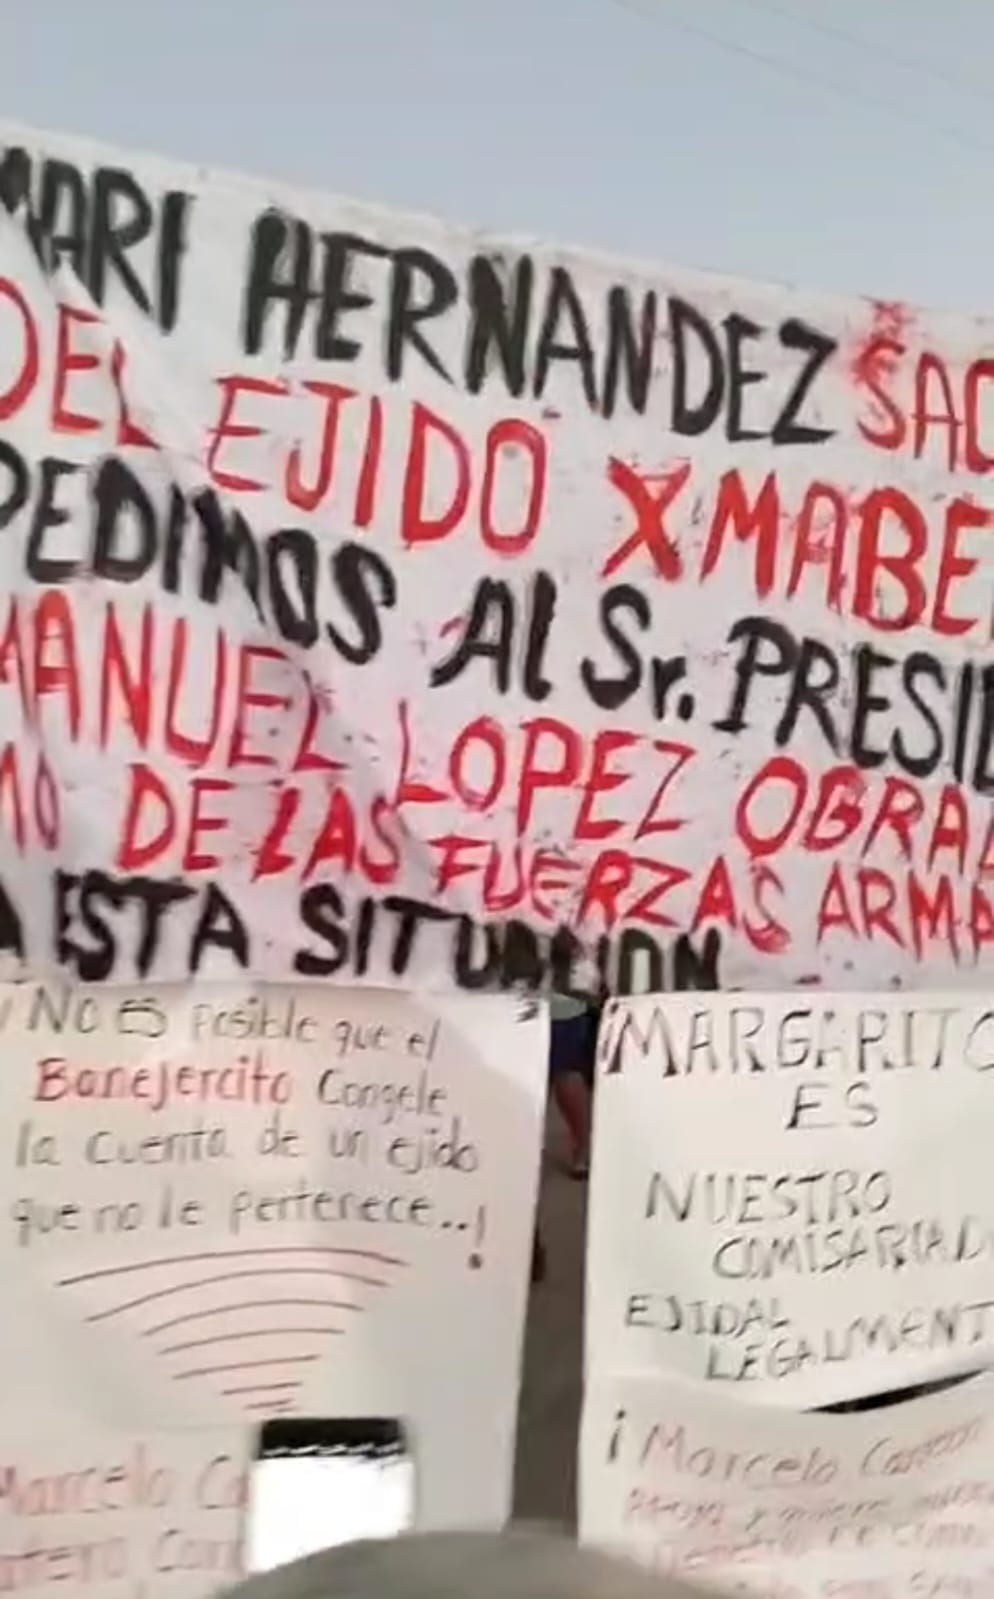 MARI HERNANDEZ SAC
DEL EJIDO XMABE
PEDIMOS Al Sr. PRESID
MANUEL LOPEZ OBRAD
MO DE LAS FUERZAS ARMA
A ESTA SITUACION
¡NO ES posible que el
Banejercito Congele
la cuenta de un ejido
que no le pertenece..!
Marcelo Ca
¡MARGARITO
ES
NUESTRO
COMISARIAD
EJIDAL
LEGALMENT
¡Marcelo